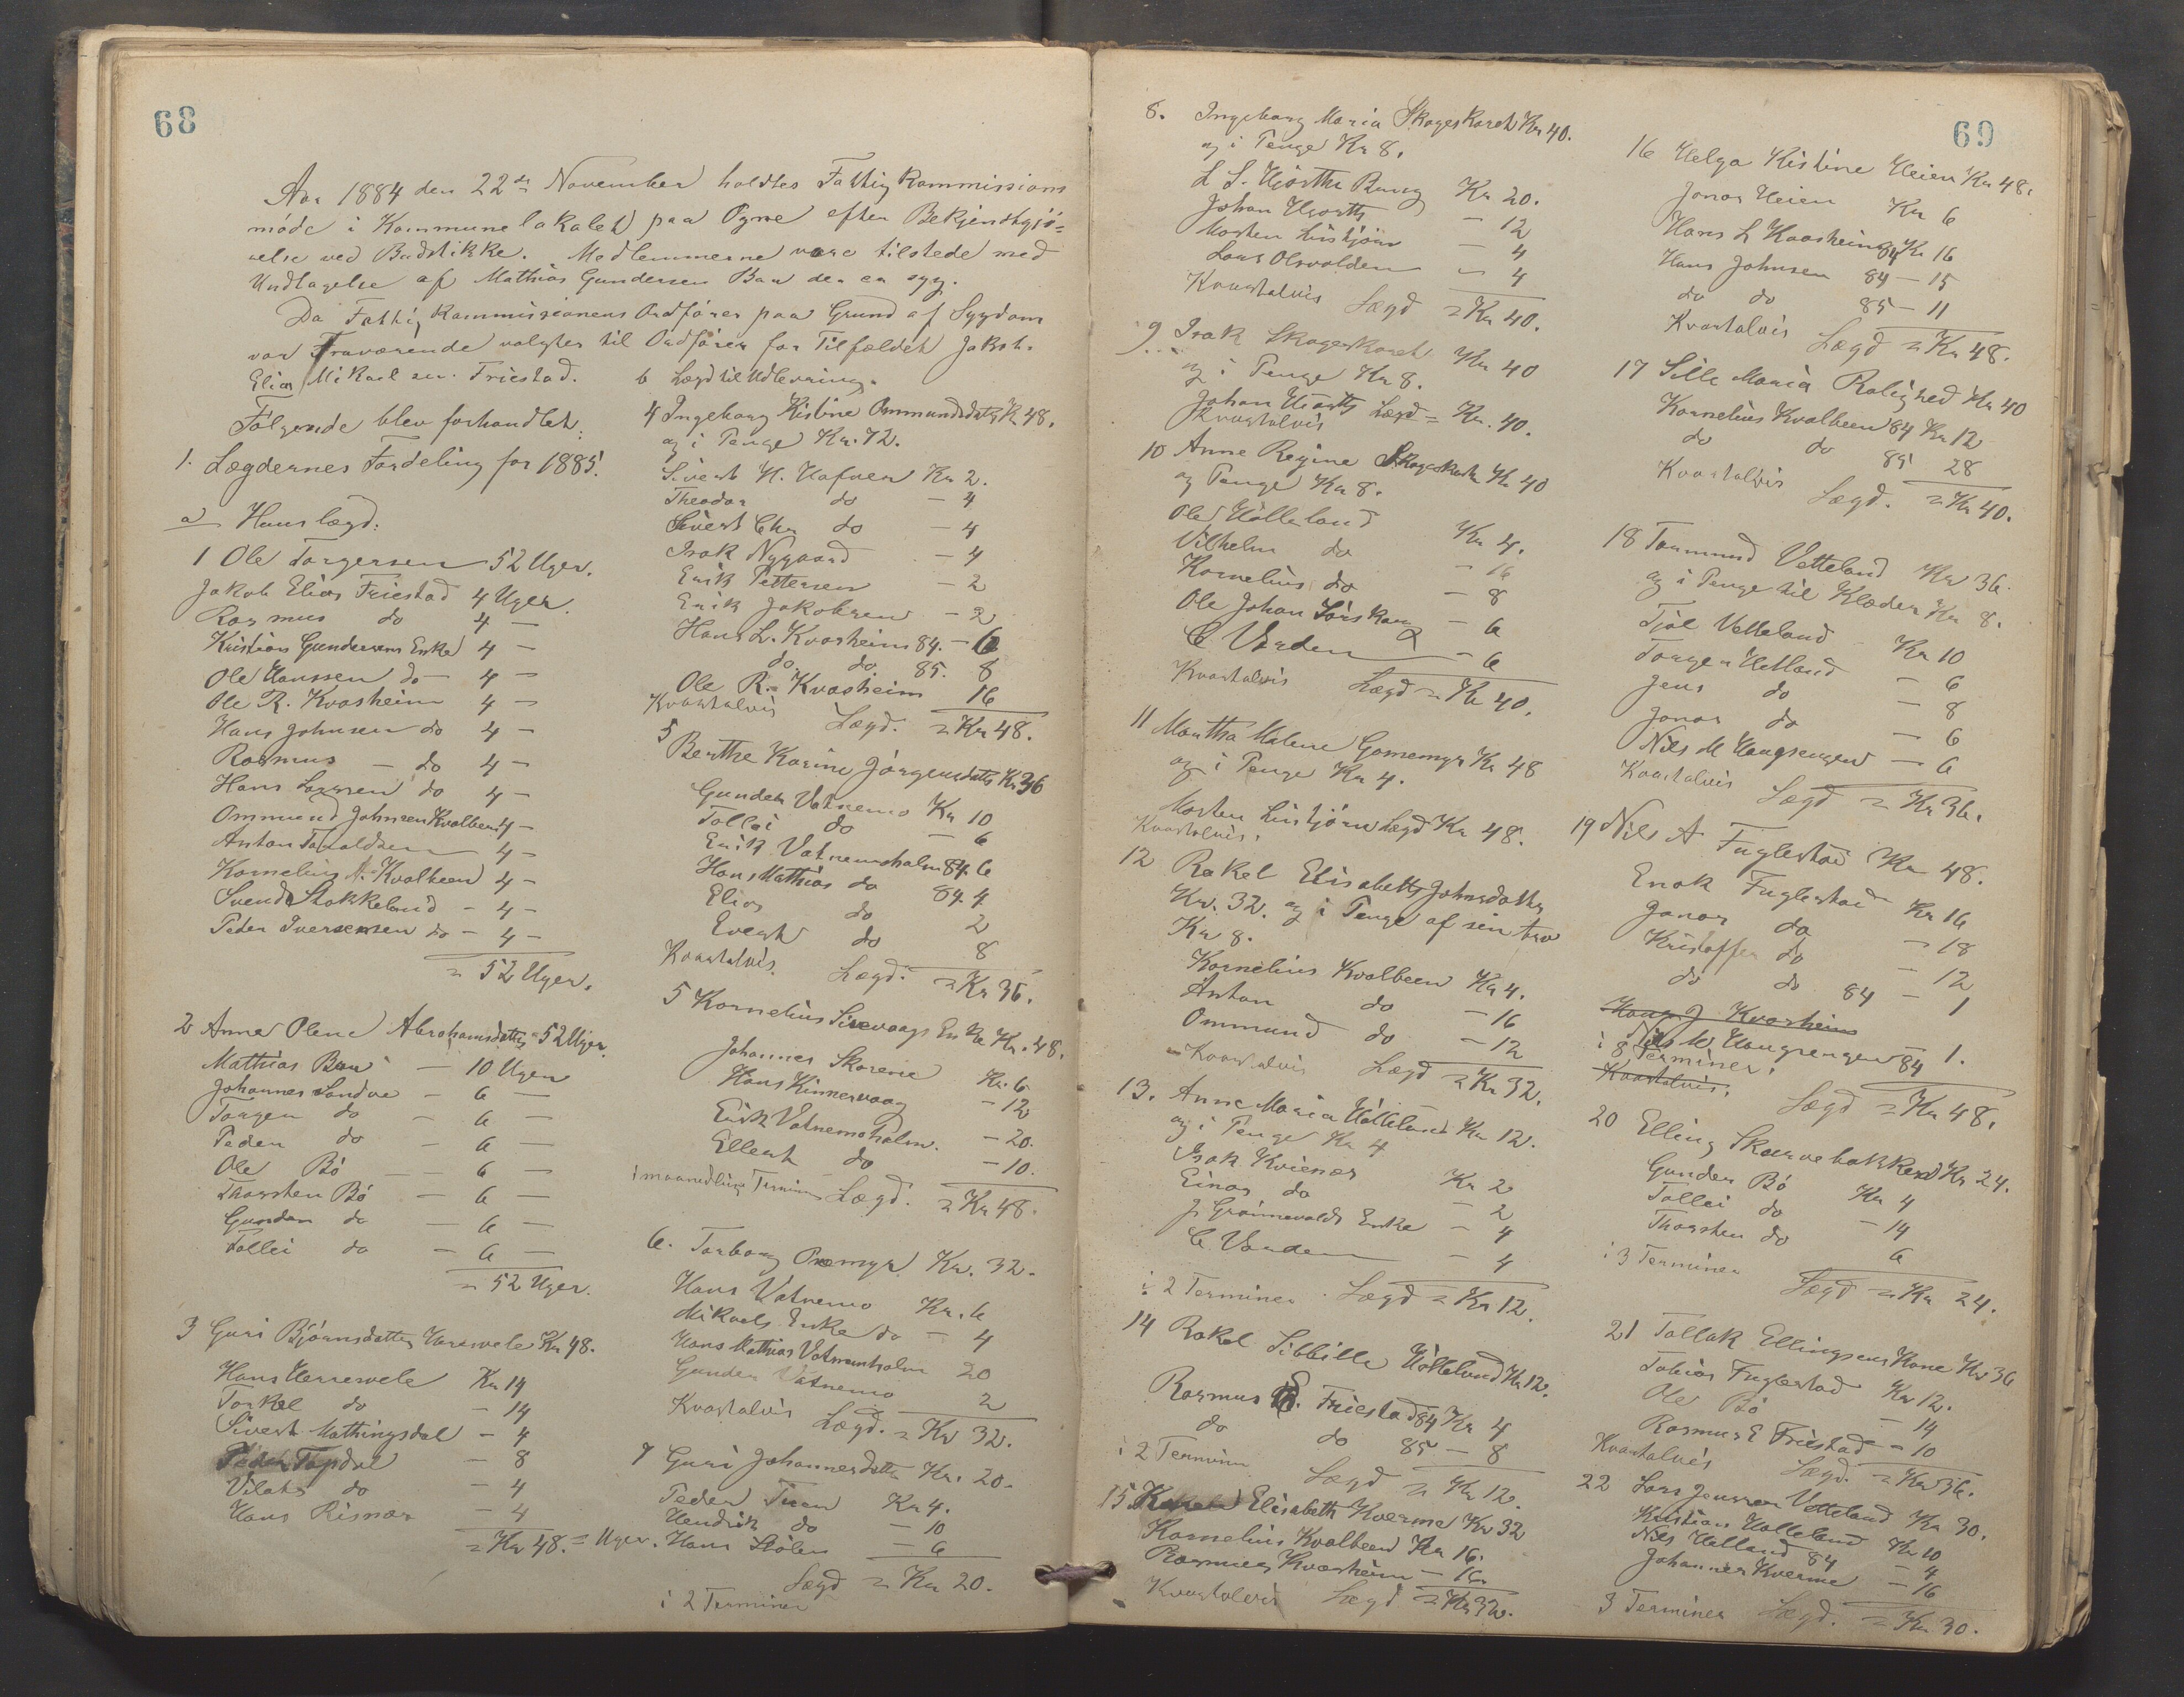 68
Aar 1884 den 22de November holdtes Fattigkommissions
møde i Kommunelokalet paa Ogne efter Bekjendtgjø=
relse ved Budstikke. Medlemmerne vare tilstede med
Undtagelse af Mathias Gundersen Bau der er syg.
Da Fattigkommissionens Ordfører paa Grund af Sygdom
var Fraværende valgtes til Ordfører for Tilfældet Jakob
Elias Mikael sen. Friestad.
Følgende blev forhandlet:
1. Lægdernes Fordeling for 1885.
a Huuslægd:
1 Ole Torgersen 52 Uger.
Jakob Elias Friestad 4 Uger.
Rasmus do 4 —
Kristian Gundersens Enke 4 —
Ole Hanssen do — 4 —
Ole R. Kvasheim 4 —
Hans Johnsen do 4 —
Rasmus — do 4 —
Hans Larsen do 4 —
Ommund Johnsen Kvalbein 4 —
Anton Taraldsen 4 —
Kornelius N. Kvalbein 4 —
Svend Stokkeland — 4 —
Peder Iversen do — 4 —
= 52 Uger.
2 Anna Olene Abrahamsdatter = 52 Uger.
Mathias Bau — 10 Uger
Johannes Sandve — 6 —
Torger do — 6 —
Peder do — 6 —
Ole Bø — — 6 —
Thorsten Bø — 6 —
Gunder do — 6 —
Tollei do — 6 —
= 52 Uger.
3 Guri Bjørnsdatter Herrevele Kr 48.
Hans Herrevele Kr 14
Torkel do — 14
Sivert Mathingsdal — 4
Peder Tapdal — 8
Vilats do — 4
Hans Risnes — 4
= Kr 48. = Uger.
b Lægd til Udlevering.
4 Ingeborg Kistine Ommundsdatter Kr 48.
og i Penge Kr. 72.
Sivert H. Hafven Kr 2.
Theodor do — 4
Sivert Chr do — 4
Isak Nygaard — 4
Erik Pettersen — 2
Erik Jakobsen — 2
Hans L. Kvasheim 84. — 6
do do 85. 8
Ole R. Kvasheim 16
Kvartalvis Lægd. = Kr 48.
5 Berthe Karine Jørgensdatter Kr 36
Gunder Vatnemo Kr 10
Tollei do — 6
Erik Vatnemoholm 84. 6
Hans Mathias do 84. 4
Elias do 2
Evert do 8
Kvartalvis. Lægd. = Kr 36.
5 Kornelius Sirevaags Enke Kr. 48.
Johannes Skarene Kr. 6
Hans Kinnervaag — 12
Erik Vatnemoholm. — 20.
Ellert do — 10.
i maanedlige Terminer Lægd. = Kr 48.
6. Torborg Oremyr Kr. 32.
Hans Vatnemo Kr. 6
Mikaels Enke do — 4
Hans Mathias Vatnemholm 20
Gunder Vatnemo 2
Kvartalvis Lægd. = Kr 32.
7 Guri Johannesdatter Kr. 20.
Peder Tuen Kr 4.
Hendrik do — 10
Hans Stølen — 6
Lægd = Kr 20.
i 2 Terminer
69
8. Ingeborg Maria Skageskaret Kr 40.
og i Penge Kr 8.
L S. Hjorths Kr 20.
Johan Hjorth — 12
Morten Lintjørn — 4
Lars Olsvolden — 4
Kvartalvis Lægd = Kr 40.
9 Isak Skageskaret Kr 40
og i Penge Kr 8.
Johan Hjorth Lægd = Kr. 40.
Kvartalvis
10 Anne Regine Skageskaret Kr 40
og Penge Kr 8.
Ole Hølleland Kr 4.
Vilhelm do — 16
Kornelius do — 8
Ole Johan Sørskog — 6
C Varden — 6
Kvartalvis Lægd = Kr 40.
11 Martha Malene Gomemyr Kr 48
og i Penge Kr 4.
Morten Lintjørn Lægd Kr 48.
Kvartalvis.
12 Rakel Elisabeth Johnsdatter
Kr. 32. og i Penge af sin
Kr 8.
Kornelius Kvalbeen Kr 4.
Anton do — 16
Ommund do — 12
Kvartalvis Lægd = Kr 32.
13. Anne Maria Hølleland Kr 12.
og i Penge Kr 4
Isak Kvienes Kr 2
Einar do — 2
J. Grønnevolds Enke — 4
C. Varden — 4
i 2 Terminer. Lægd = Kr 12.
14 Rakel Sibbille Hølleland Kr 12.
Rasmus E. Friestad 84 Kr 4
do do 85 — 8
i 2 Terminer Lægd = Kr 12.
15 Karen Elisabeth Kverme Kr 32
Kornelius Kvalbeen Kr 16.
Rasmus Kvasheim — 16.
Kvartalvis Lægd = Kr 32.
16 Helga Kistine Heien Kr 48.
Jonas Heien Kr 6
Hans L Kvasheim 84 Kr 16
Hans Johnsen 84 — 15
do do 85 — 11
Kvartalvis Lægd = Kr 48.
17 Sille Maria Rolighed Kr 40
Kornelius Kvalbeen 84 Kr 12
do do 85 28
Kvartalvis Lægd. = Kr 40.
18 Tormund Vetteland Kr 36.
og i Penge til Klæder Kr 8.
Tjøl Vetteland Kr 10
Torger Hetland — 6
Jens do — 8
Jonas do — 6
Nils M Haugsengen — 6
Kvartalvis Lægd = Kr 36.
19 Nils A Fuglestad Kr 48.
Enok Fuglestad Kr 16
Jonas do — 18
Kristoffer do — 12
do do 84 — 1
Hans J Kvasheim
Nils M Haugsengen 84 — 1.
i 8 Terminer.
Kvartalvis. Lægd = Kr 48.
20 Elling Skarvebakken Kr 24.
Gunder Bø Kr 4
Tollei do — 14
Thorsten do 6
i 3 Terminer Lægd = Kr 24.
21 Tollak Ellingsens Kone Kr 36
Tobias Fuglestad Kr 12.
Ole Bø — 14
Rasmus E Friestad — 10
Kvartalvis Lægd. = Kr 36.
22 Lars Jensen Vetteland Kr 30.
Kristian Hølleland Kr 10
Nils Hetland 84 — 4
Johannes Kverme — 16
3 Terminer Lægd. = Kr 30.